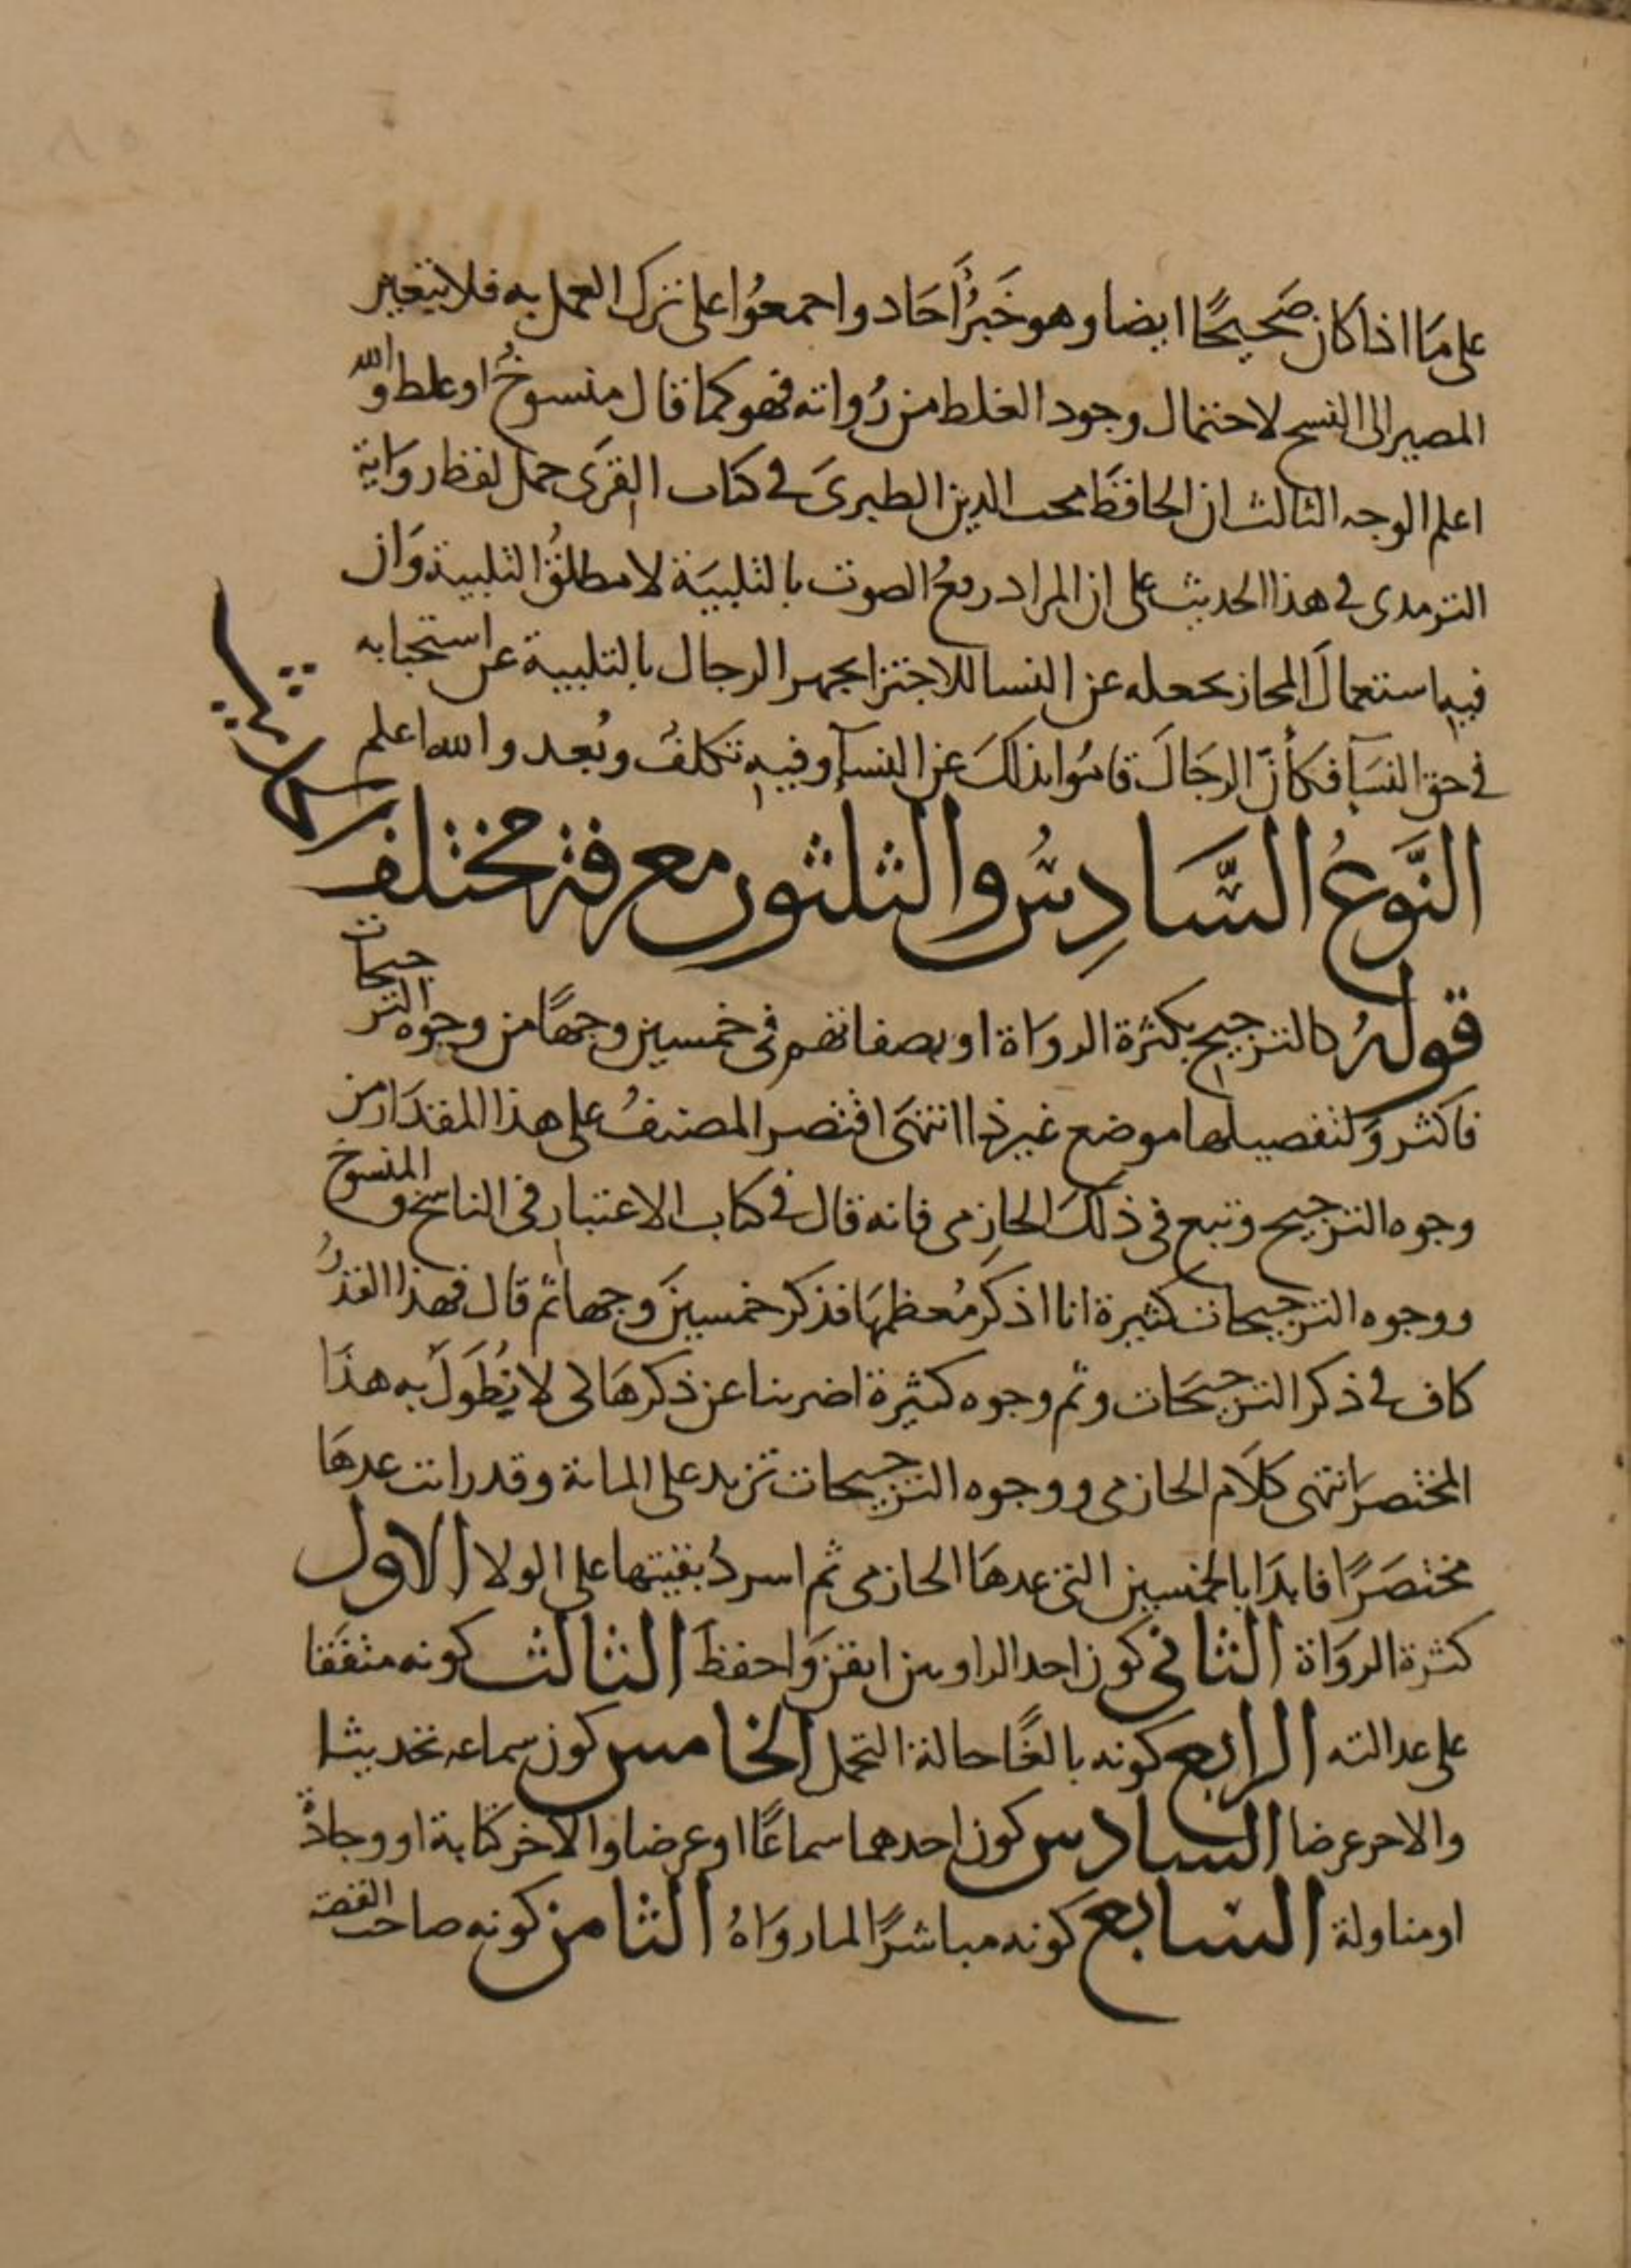 على ما اذا كان صَحيحًا ايضا وهو خَبرُ أَحَاد واجمعُوا على ترك العمل به فلا يتعين
المصير الى النسخ لاحتمال وجود الغلط من رُواته فهو كما قال منسوخُ او غلط والله
اعلم الوجه الثالث ان الحافظَ محب الدين الطبرىَ فى كتاب القِرَى حمل لفظ روَاية
الترمدى فى هذا الحديث على ان المراد رفعُ الصوت بالتلبيَة لا مطلقُ التلبية وَان
فيه استعمالَ المجاز بجعله عن النسا للاجتزا بجهر الرجال بالتلبية عن استحبابه
فى حق النسَآ فكأنّ الرجَالَ قامُوا بذلكَ عن النسآ وفيه تكلفُ وبُعد والله اعلم
النَّوعُ السَّادِسُ والثلثون معرفة مختلف الحديث
قولهُ كالترجيح بكثرة الروَاة او بصفاتهم فى خمسين وجهًا من وجوه الترجيحات
فاكثر وَلتفصيلها موضع غير ذا انتهَى اقتصر المصنفُ على هذا المقدَار من
وجوه الترجيح وتبع فى ذلكَ الحازِمى فانه قال فى كتاب الاعتبار فى الناسخ والمنسوخ
ووجوه الترجيحات كثيرة انا اذكرُ مُعظمهَا فذكر خمسينَ وجها ثم قال فهذا القدرُ
كاف فى ذكر الترجيحَات وثم وجوه كثيرة اضربنا عن ذكرهَا كى لا يُطَوَلَ به هذَا
المختصر انتهى كلَام الحازمى ووجوه الترجيحات تزيد على المائة وقد رايت عدهَا
مختصَرًا فابدَا بالخمسين التى عدهَا الحازمى ثم اسردُ بقيتها على الولا الاول
كثرة الروَاة الثانى كون احد الراويين اتقن وَاحفظَ الثالث كونه متفقَا
على عدالته الرابع كونه بالغًا حالة التحمل الخامس كون سماعه تحديثا
والاخر عرضا السادس كون احدهما سماعًا او عرضا والآخر كتابة او وجادةً
او مناولة السابع كونه مباشرًا لما روَاهُ الثامن كونه صاحب القصة